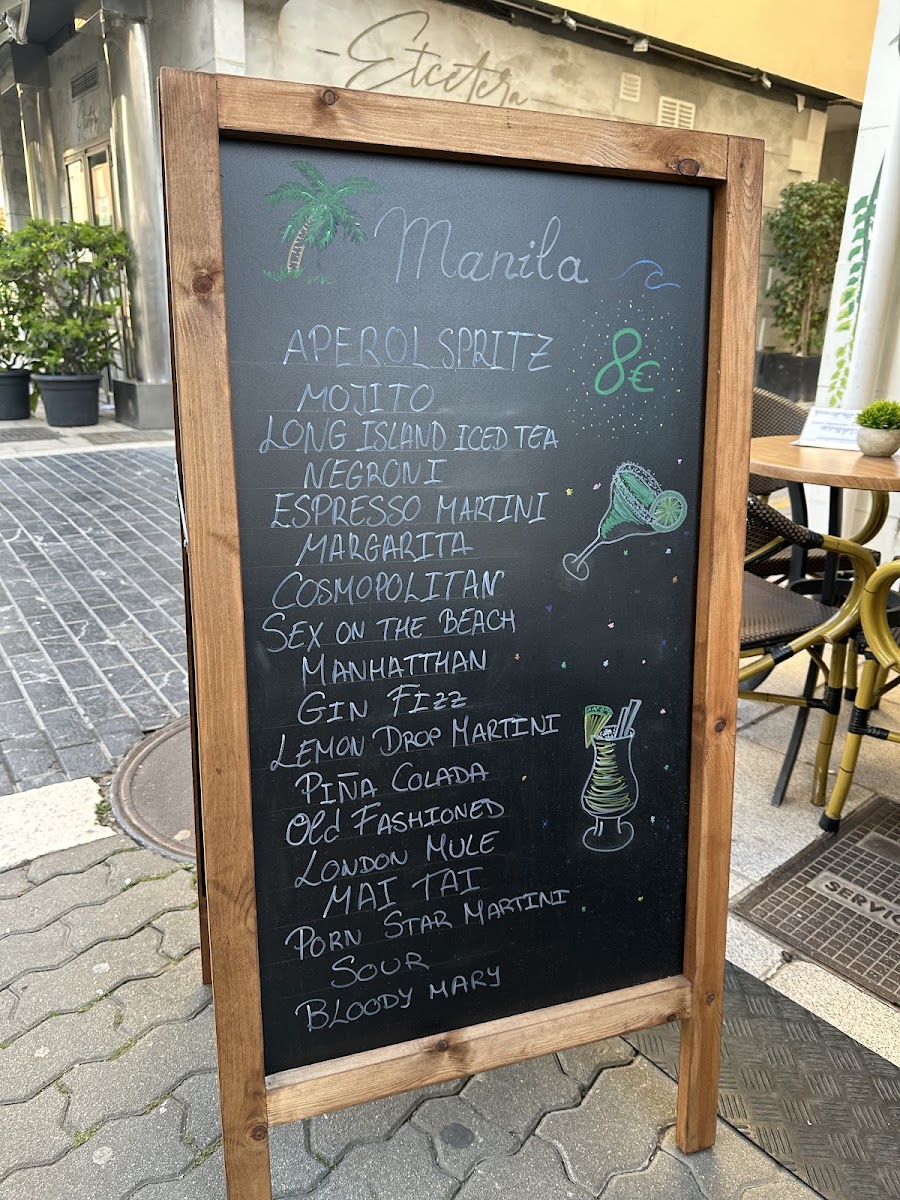 Etcetera
Manila
APEROL SPRITZ
8€
MOJITO
LONG ISLAND ICED TEA
NEGRONI
ESPRESSO MARTINI
MARGARITA
COSMOPOLITAN
SEX ON THE BEACH
MANHATTHAN
GIN FIZZ
LEMON DROP MARTINI
PIÑA COLADA
Old FASHIONED
LONDON MULE
MAI TAI
PORN STAR MARTINI
SOUR
BLOODY MARY
SERVIC